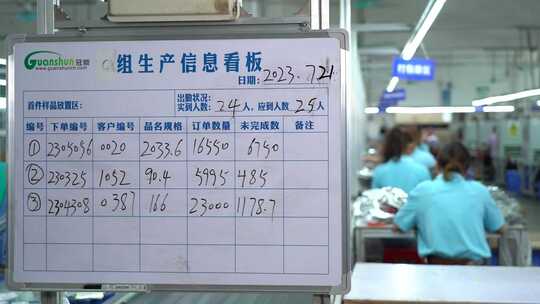 Guanshun 冠顺
www.guanshuncn.com
组生产信息看板
日期: 2023.7.21
首件样品放置区:
出勤状况:
实到人数: 24 人, 应到人数 25 人
编号 下单编号 客户编号 品名规格 订单数量 未完成数 备注
① 2305056 0020 2033.6 16550 6750
② 230325 1052 90.4 5995 485
③ 2304308 0387 166 23000 1178.7